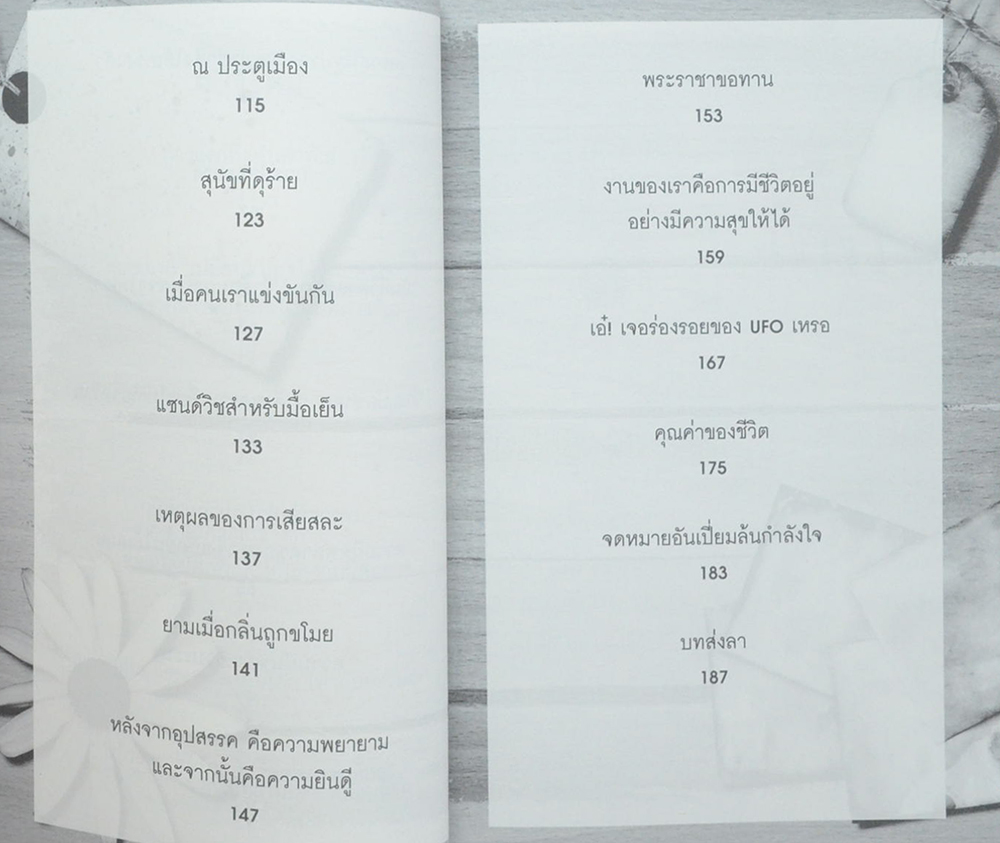 ณ ประตูเมือง
115
สุนัขที่ดุร้าย
123
เมื่อคนเราแข่งขันกัน
127
แซนด์วิชสำหรับมื้อเย็น
133
เหตุผลของการเสียสละ
137
ยามเมื่อกลิ่นถูกขโมย
141
หลังจากอุปสรรค คือความพยายาม
และจากนั้นคือความยินดี
147
พระราชาขอทาน
153
งานของเราคือการมีชีวิตอยู่
อย่างมีความสุขให้ได้
159
เอ๋! เจอร่องรอยของ UFO เหรอ
167
คุณค่าของชีวิต
175
จดหมายอันเปี่ยมล้นกำลังใจ
183
บทส่งลา
187